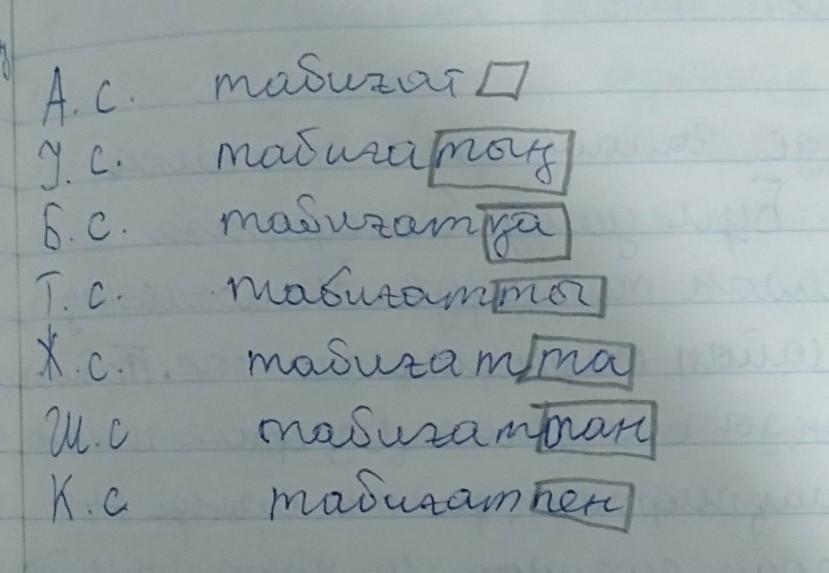 А. с. табиғат
У. с. табиғатың
Б. с. табиғатқа
Т. с. табиғатты
Ж. с. табиғатта
Ш. с табиғаттан
К. с табиғатпен